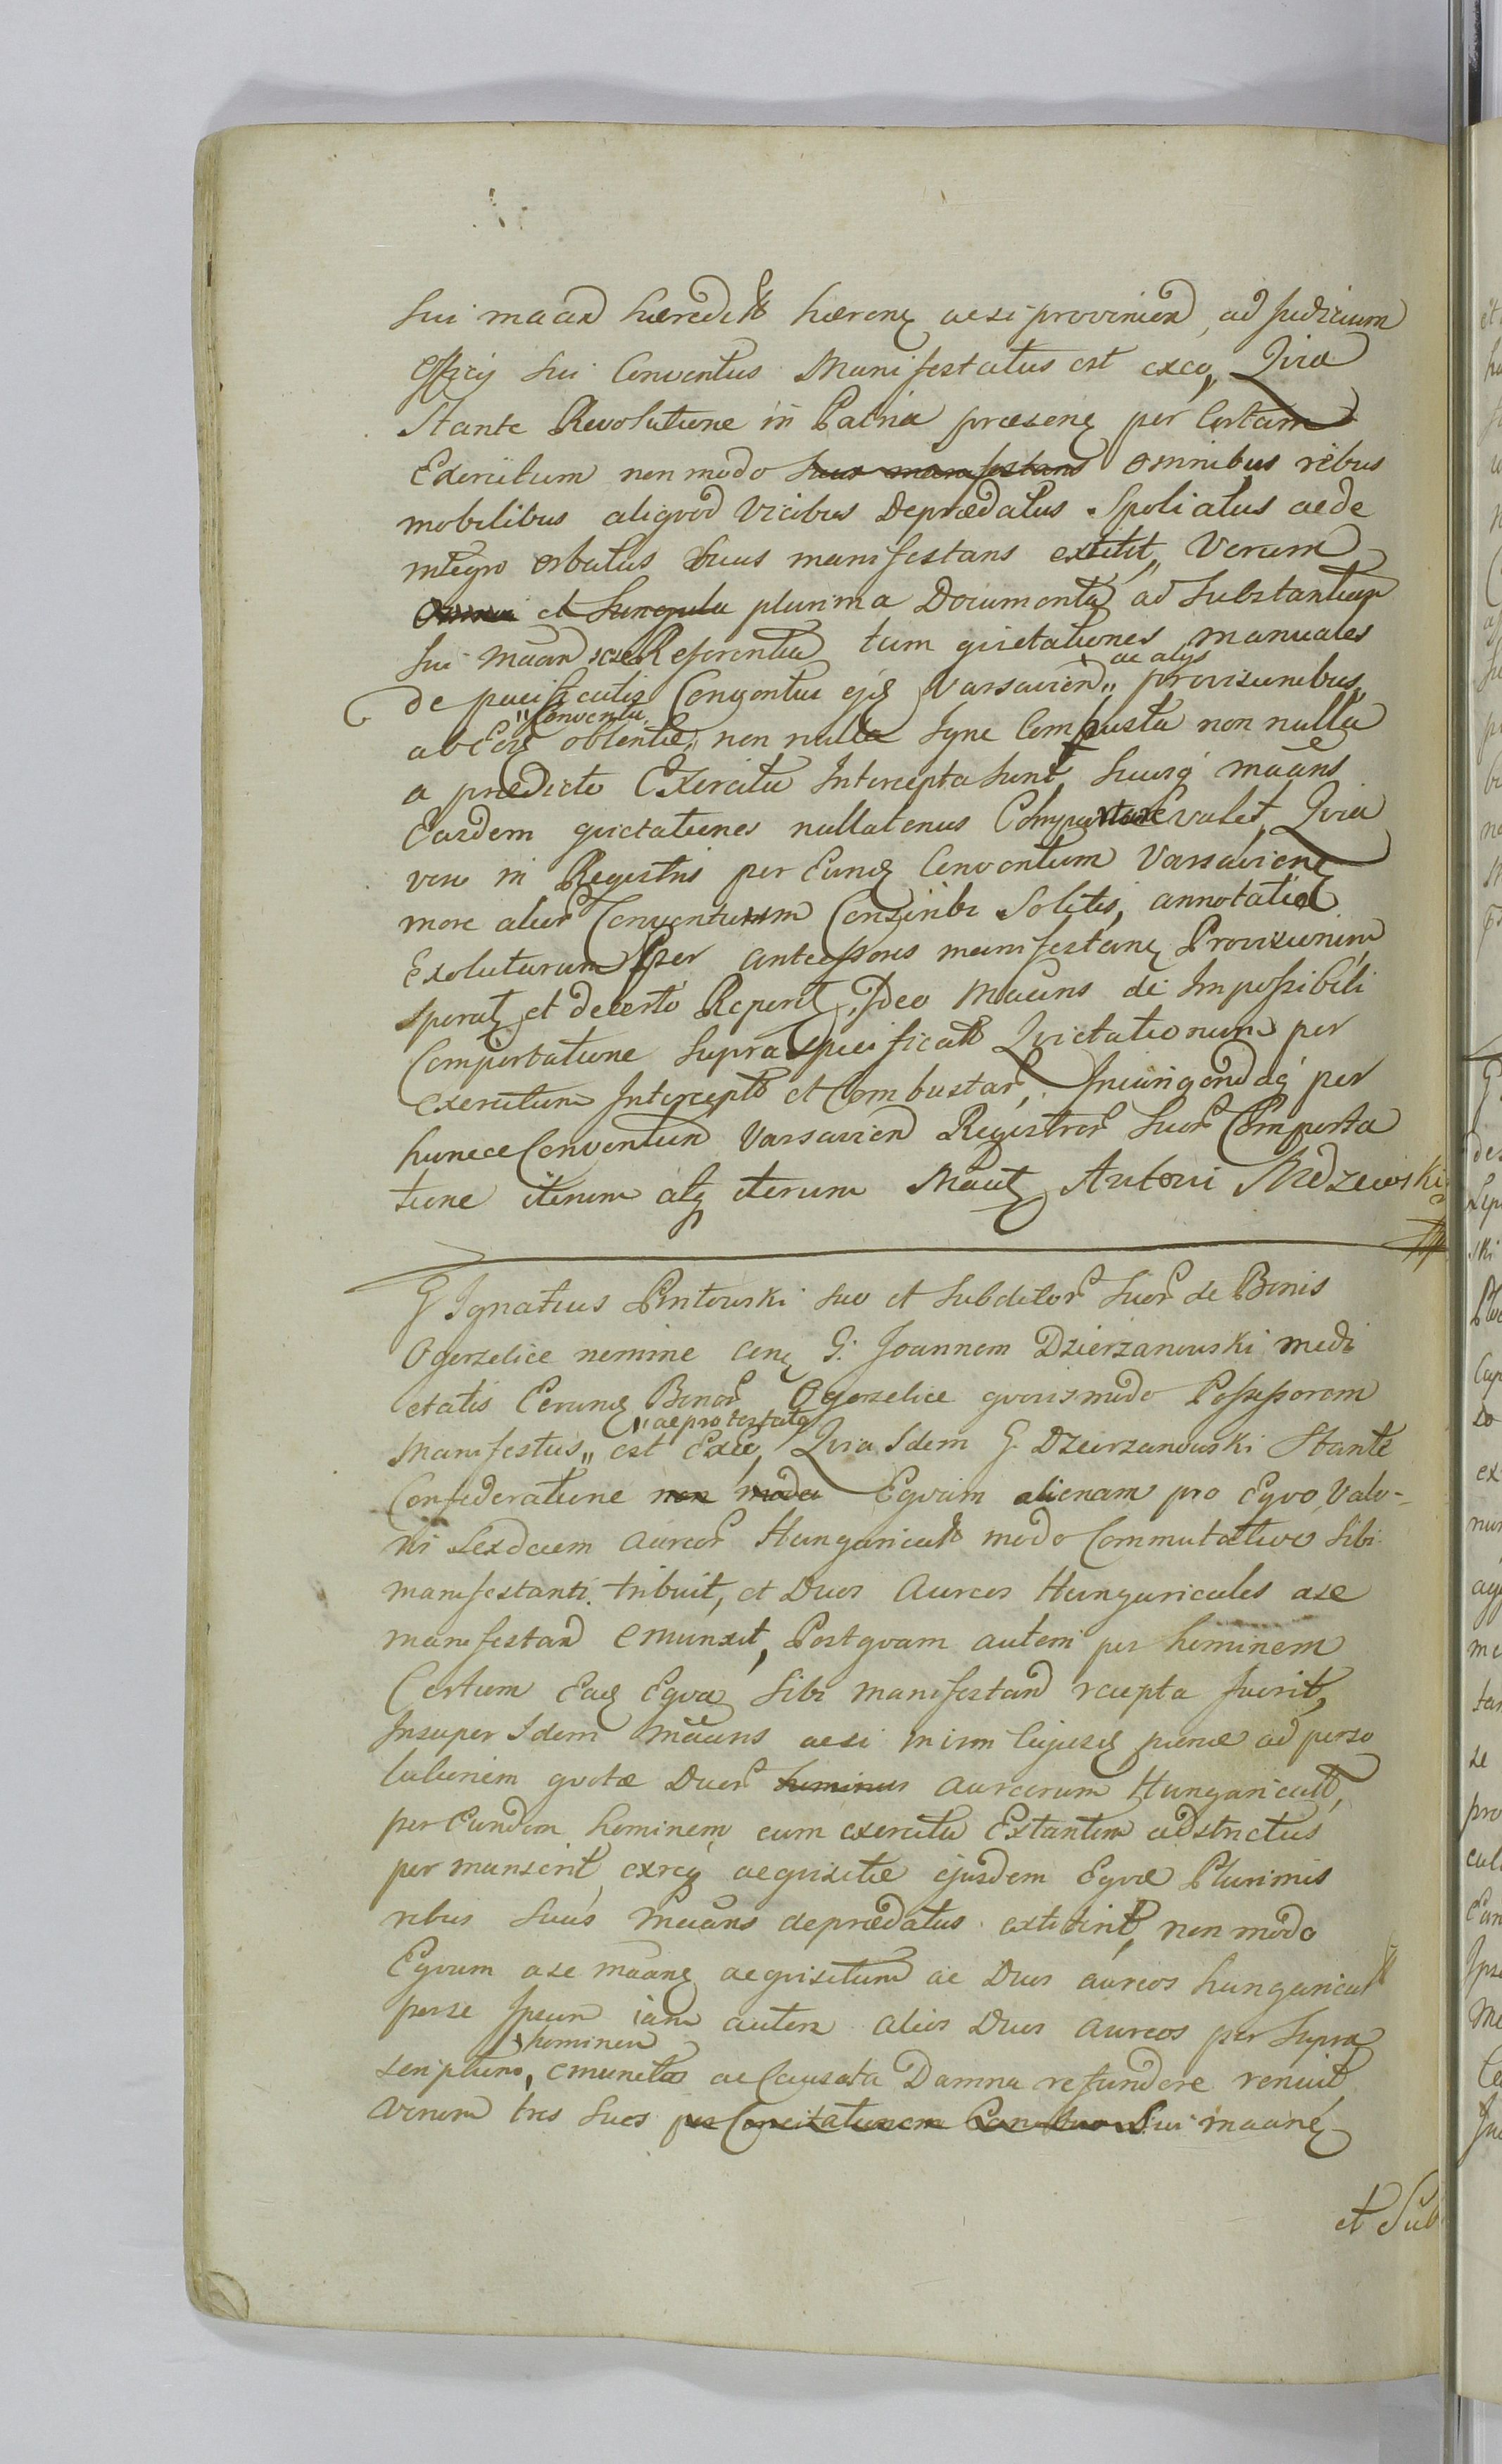 sui maan haeredit haerenq aesi provinien, ad Judicium
Officij sui Conventus Manifestatus est exeo, Qvia
Stante Revolutione in Patria praesenq per Certam
Exercitum non modo suus manifestans omnibus rebus
mobilibus aliqvod vicibus Depraedatus Spoliatus ac de
integro orbatus suus manifestans extitit, Verum
Omnia et Singula plurima Documenta ad Substantiam
sui maan sese Referentia tum qvietationes manuales
ac alijs
de pacificatis Conventui ejq Varsavien provisionibus
Conventu
ab Eoq obtentae, non nulla Igne Combusta non nulla
a praedicto Exercitu Intercepta sunt, suusq maans
Easdem qvietationes nullatenus Comportare valet, Qvia
vero in Regestris per Eunq Conventum Varsavienq
more alior Conventuum Conscribi Solitis, annotatid
Exolutarum Per antecessores manifestanq Provisionum
sperat et decerto Reperit, Ideo Maans de Impossibili
Comportatione supra specificat Qvietationum per
exercitum Intercept et Combustar, Iniungendaq per
huncce Conventum Varsavien Regestror suor Comporta
tione iterum atq iterum Maat Antoni Medzewski
G Ignatius Pintowski suo et subditor suor de Bonis
Ogorzelice nomine conq G. Joannem Dzierzanowski medi
etatis Eorunq Bonor Ogorzelice qvovis modo Possessorem
ac protestatq
Manifestus est Exeo, Qvia Idem G. Dzierzanowski Stante
Confideratione non modo Eqvam alienam pro Eqvo, Valo-
ris sexdecem aureor Hungarical modo Commutativo sibi
manifestanti tribuit, et Duos Aureos Hungaricales a se
manifestan emunxit, Postqvam autem per hominem
Certum Eaq Eqva sibi manifestand recepta fuerit,
Insuper Idem maans aesi in vim Cujusq paenae ad perso
lutionem qvotae Duor hominus aureorum Hungarical,
per Eundem hominem cum exercitu Extantem adstrictus
permanserit, exrcq aeqvisitae ejusdem Eqvae Plurimis
rebus suus maans depraedatus extiterit, non modo
Eqvum a se maanq aeqvisitum ac Duos aureos hungarical
per se Ipsum iam autem alios Duos aureos per supra
hominem
scriptum, emunctos ac Causata Damna refundere renuit
Verum tres suos per Concitationem sui maanq
et Sub